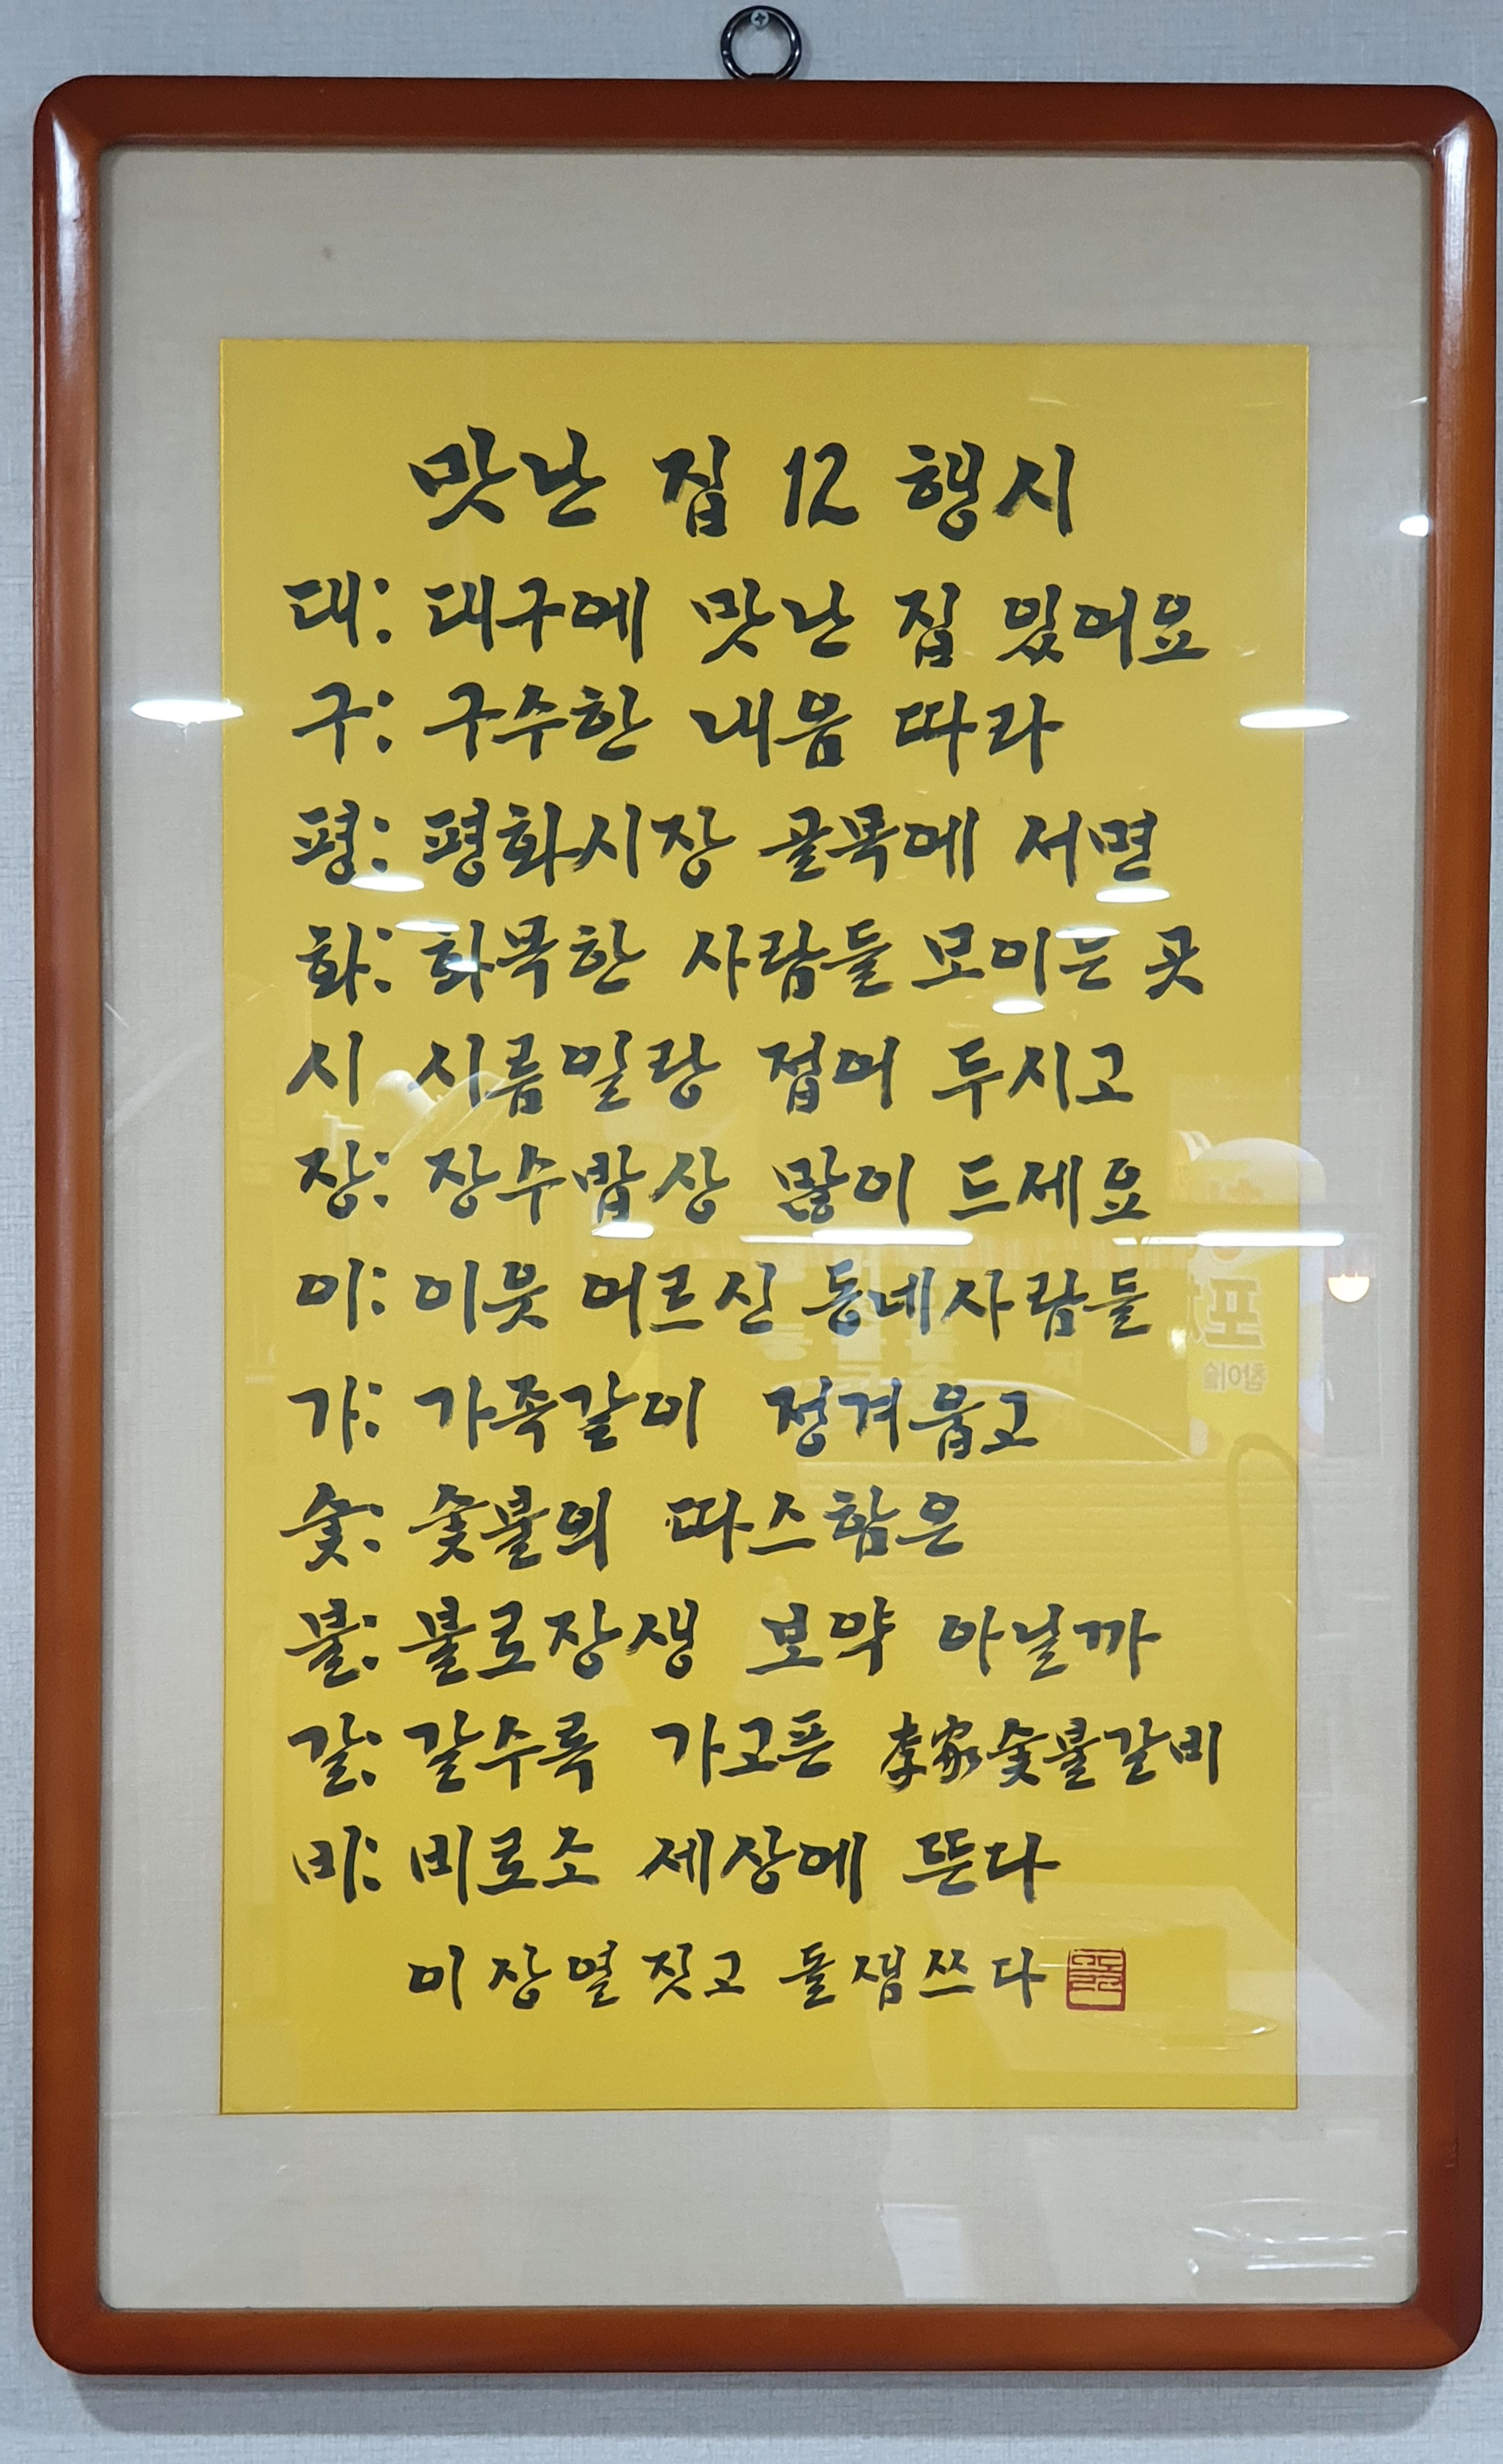 맛난 집 12 행시
대: 대구에 맛난 집 있어요
구: 구수한 내음 따라
평: 평화시장 골목에 서면
화: 화목한 사람들 모이는 곳
시 시름일랑 접어 두시고
장: 장수밥상 많이 드세요
이: 이웃 어르신 동네사람들
가: 가족같이 정겨웁고
숯: 숯불의 따스함은
불: 불로장생 보약 아닐까
갈: 갈수록 가고픈 李家숯불갈비
비: 비로소 세상에 뜬다
이장열 짓고 돌샘쓰다